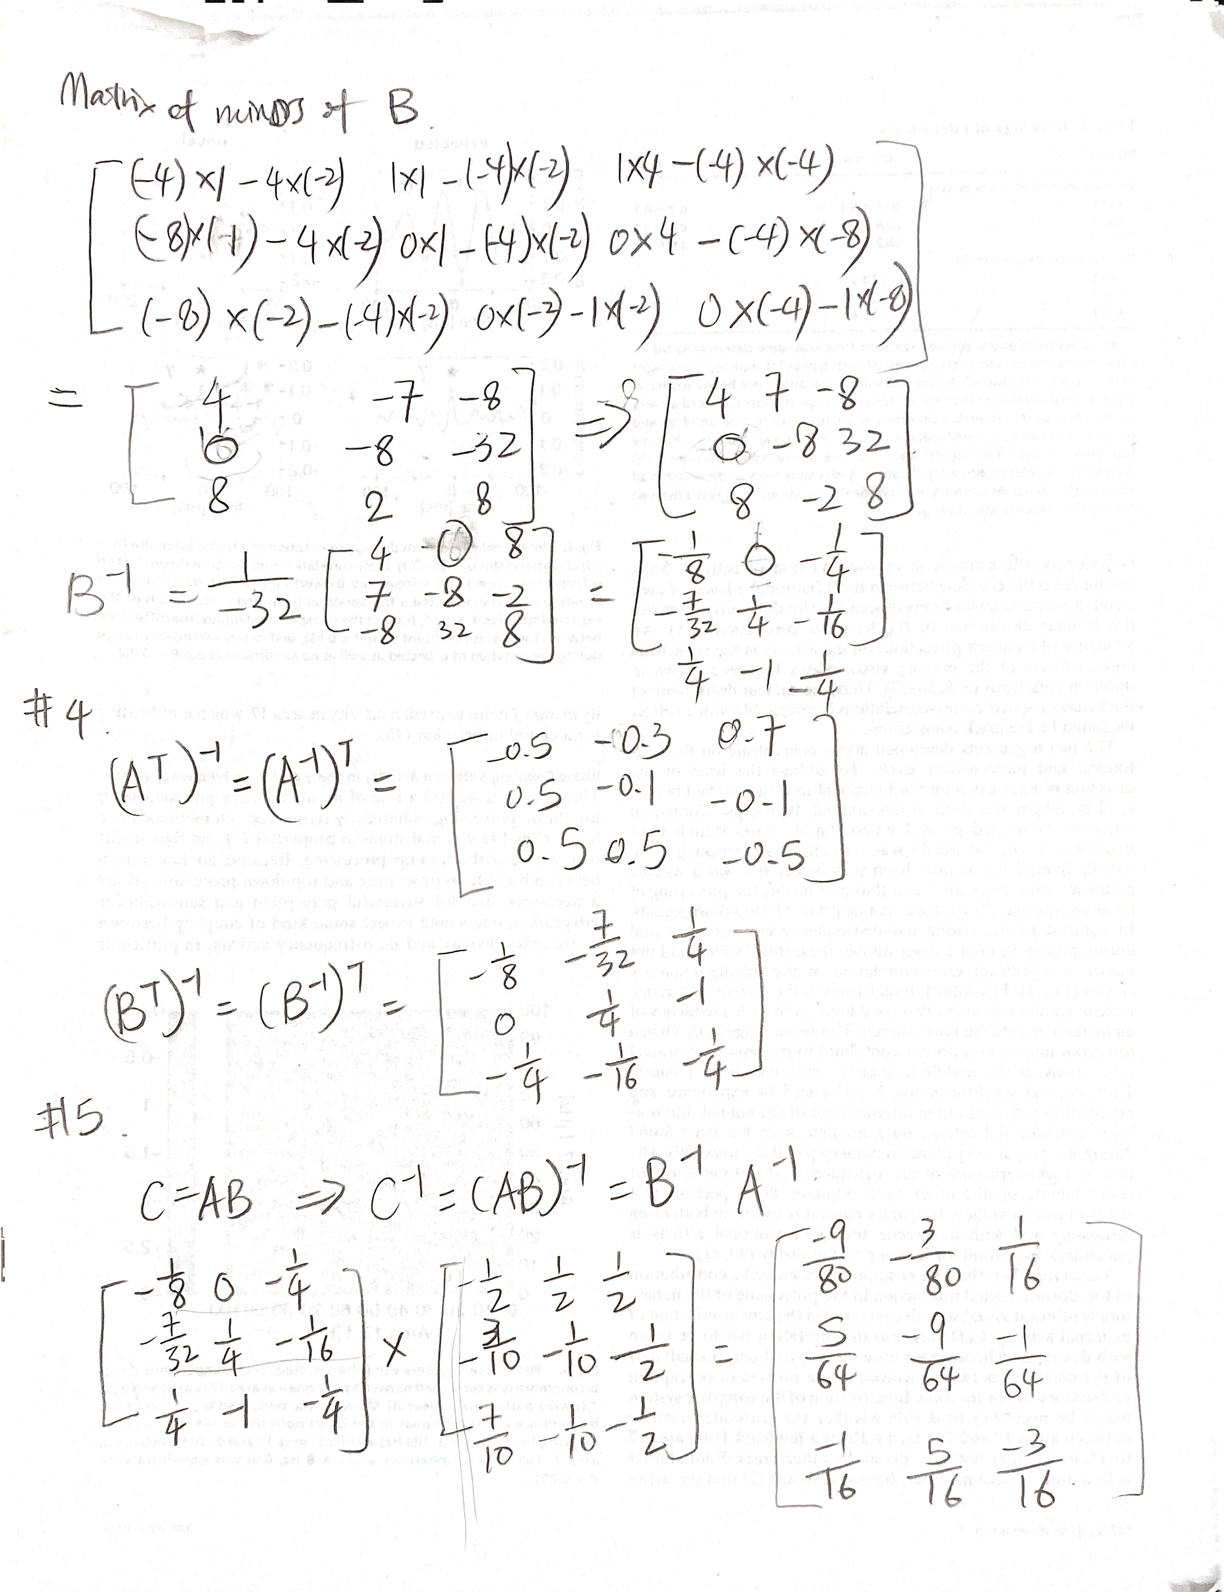 Matrix of minors of B.
[ (-4)×1 - 4×(-2)   1×1 - (-4)×(-2)   1×4 - (-4)×(-4)
(-8)×(-1) - 4×(-2)   0×1 - (-4)×(-2)   0×4 - (-4)×(-8)
(-8)×(-2) - (-4)×(-2)   0×(-2) - 1×(-2)   0×(-4) - 1×(-8) ]
= [ 4 -7 -8 ; 0 -8 -32 ; 8 2 8 ] ⇒ [ 4 7 -8 ; 0 -8 32 ; 8 -2 8 ]
B⁻¹ = 1/-32 [ 4 -0 8 ; 7 -8 -2 ; -8 32 8 ] = [ -1/8 0 -1/4 ; -7/32 1/4 -1/16 ; 1/4 -1 -1/4 ]
#4.
(Aᵀ)⁻¹ = (A⁻¹)ᵀ = [ -0.5 -0.3 0.7 ; 0.5 -0.1 -0.1 ; 0.5 0.5 -0.5 ]
(Bᵀ)⁻¹ = (B⁻¹)ᵀ = [ -1/8 -7/32 1/4 ; 0 1/4 -1 ; -1/4 -1/16 -1/4 ]
#15.
C=AB ⇒ C⁻¹ = (AB)⁻¹ = B⁻¹ A⁻¹
[ -1/8 0 -1/4 ; -7/32 1/4 -1/16 ; 1/4 -1 -1/4 ] × [ -1/2 1/2 1/2 ; -3/10 -1/10 -1/2 ; -7/10 -1/10 -1/2 ] = [ -9/80 -3/80 1/16 ; 5/64 -9/64 -1/64 ; -1/16 5/16 -3/16 ]